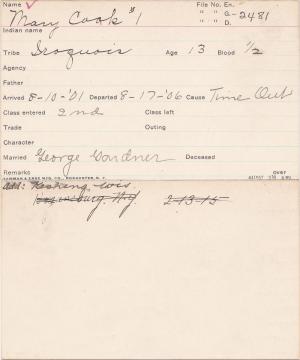 Name File No. En.
Mary Cook #1 " " G- 2481
Indian name " " D.
Tribe Iroquois Age 13 Blood 1/2
Agency
Father
Arrived 8-10-'01 Departed 8-17-'06 Cause Time Out
Class entered 2nd Class left
Trade Outing
Character
Married George Gardner Deceased
Remarks OVER
Add: Keshena, Wis.
Hogansburg, N.Y. 2-13-15